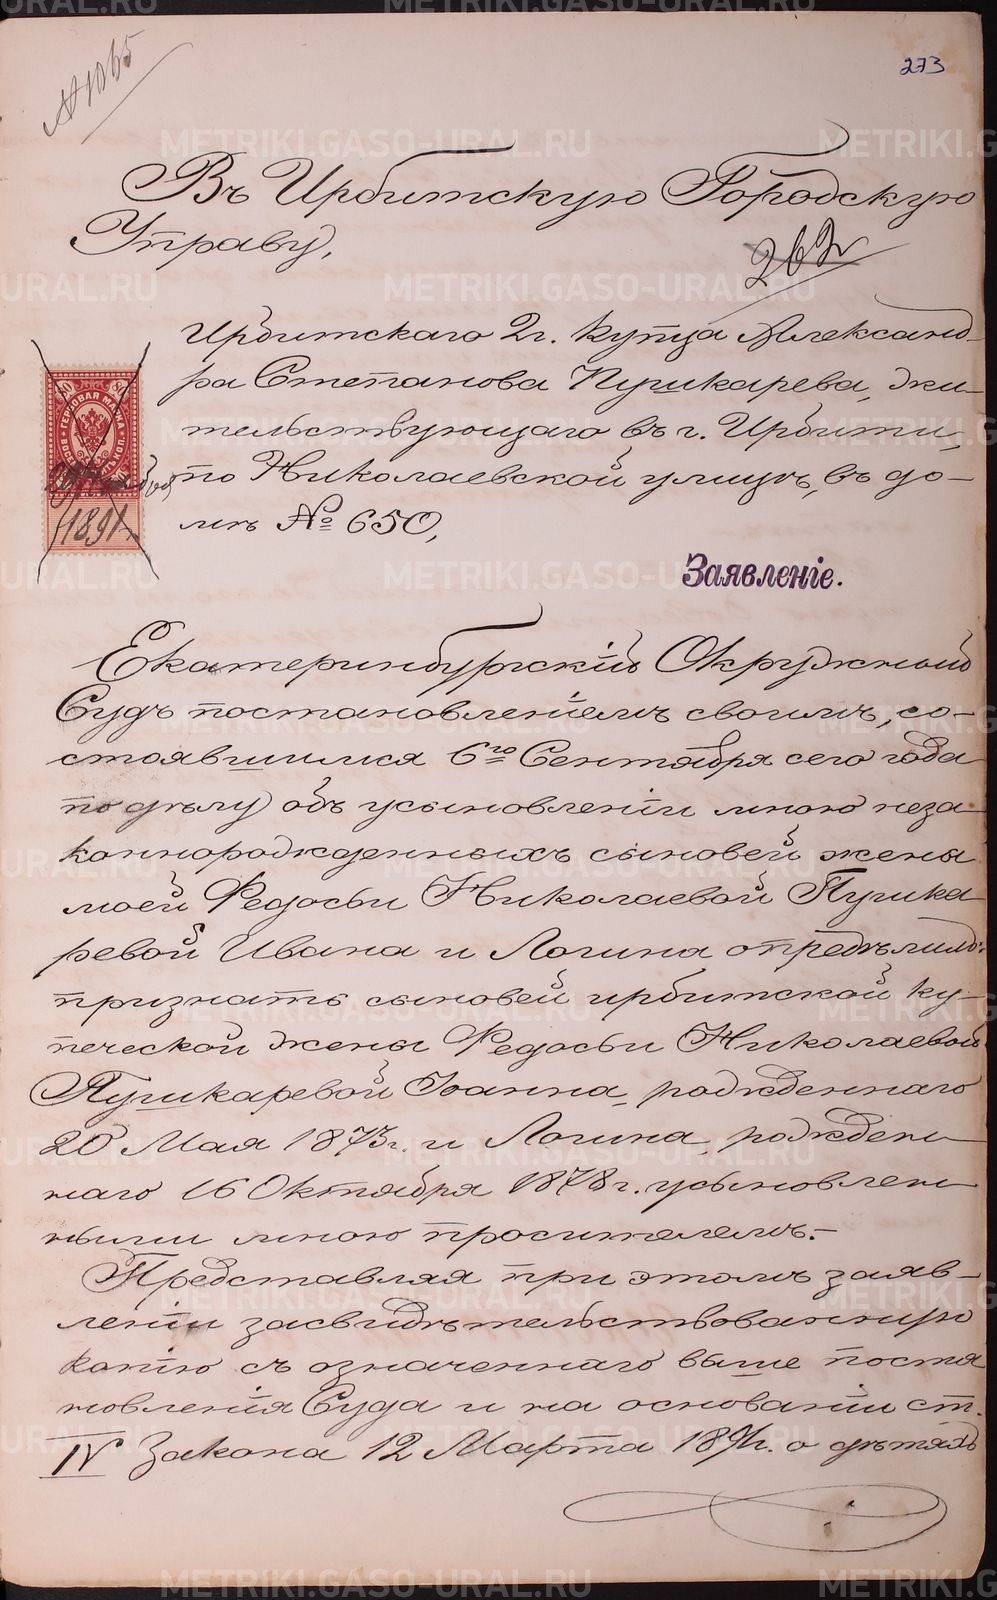 № 1065
273
Въ Ирбитскую Городскую
Управу,
262
Ирбитскаго 2 г. купца Александ-
ра Степанова Пушкарева, жи-
тельствующаго въ г. Ирбити,
по Николаевской улицѣ, въ до-
мѣ № 650,
ГЕРБОВАЯ МАРКА
80
1891
Заявленіе.
Екатеринбургскій Окружный
Судъ постановленіемъ своимъ, со-
стоявшимся 6го Сентября сего года
по дѣлу объ усыновленіи мною неза-
коннорожденныхъ сыновей жены
моей Федосьи Николаевой Пушка
ревой Ивана и Логина опредѣлилъ:
признать сыновей ирбитской ку-
печеской жены Федосьи Николаевой
Пушкаревой Іоанна, рожденнаго
20 Мая 1873 г. и Логина, рожден
наго 16 Октября 1878 г. усыновлен
ными мною просителемъ.-
Представляя при этомъ заяв-
леніи засвидѣтельствованную
копію съ означеннаго выше поста
новленія Суда и на основаніи ст.
IV Закона 12 Марта 1891 г. о дѣтяхъ
METRIKI.GASO-URAL.RU